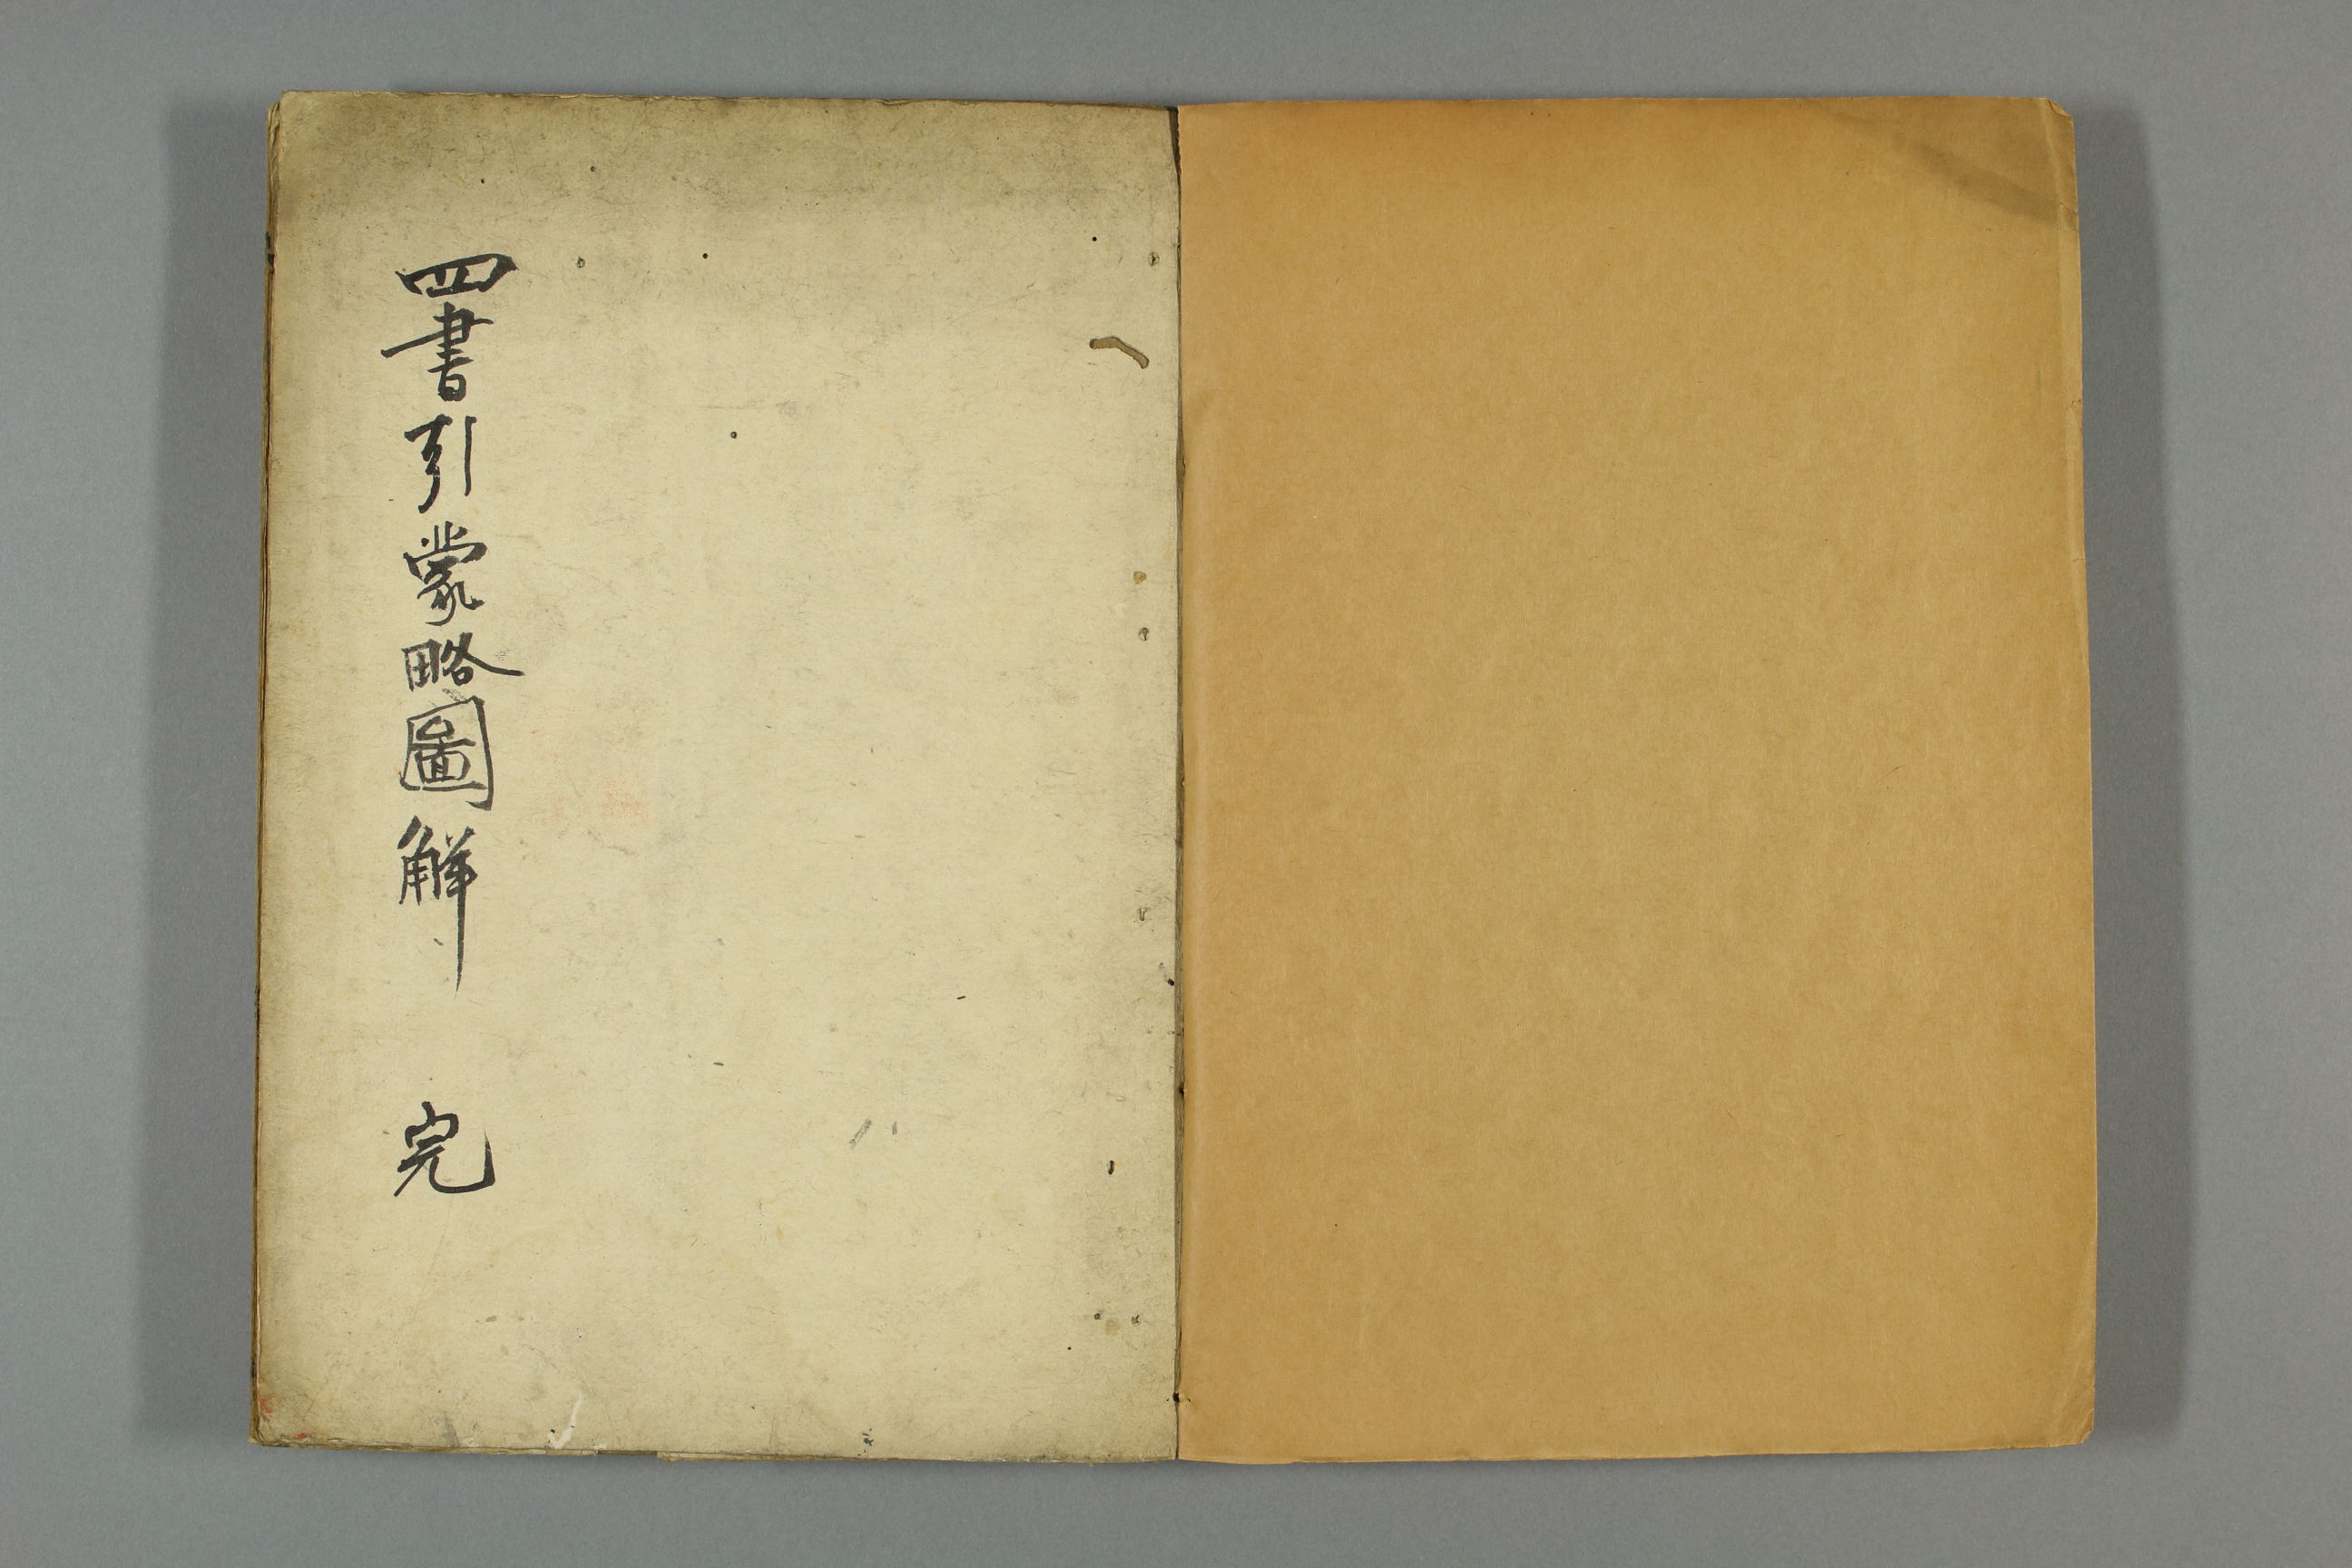 四書引蒙略圖解 完